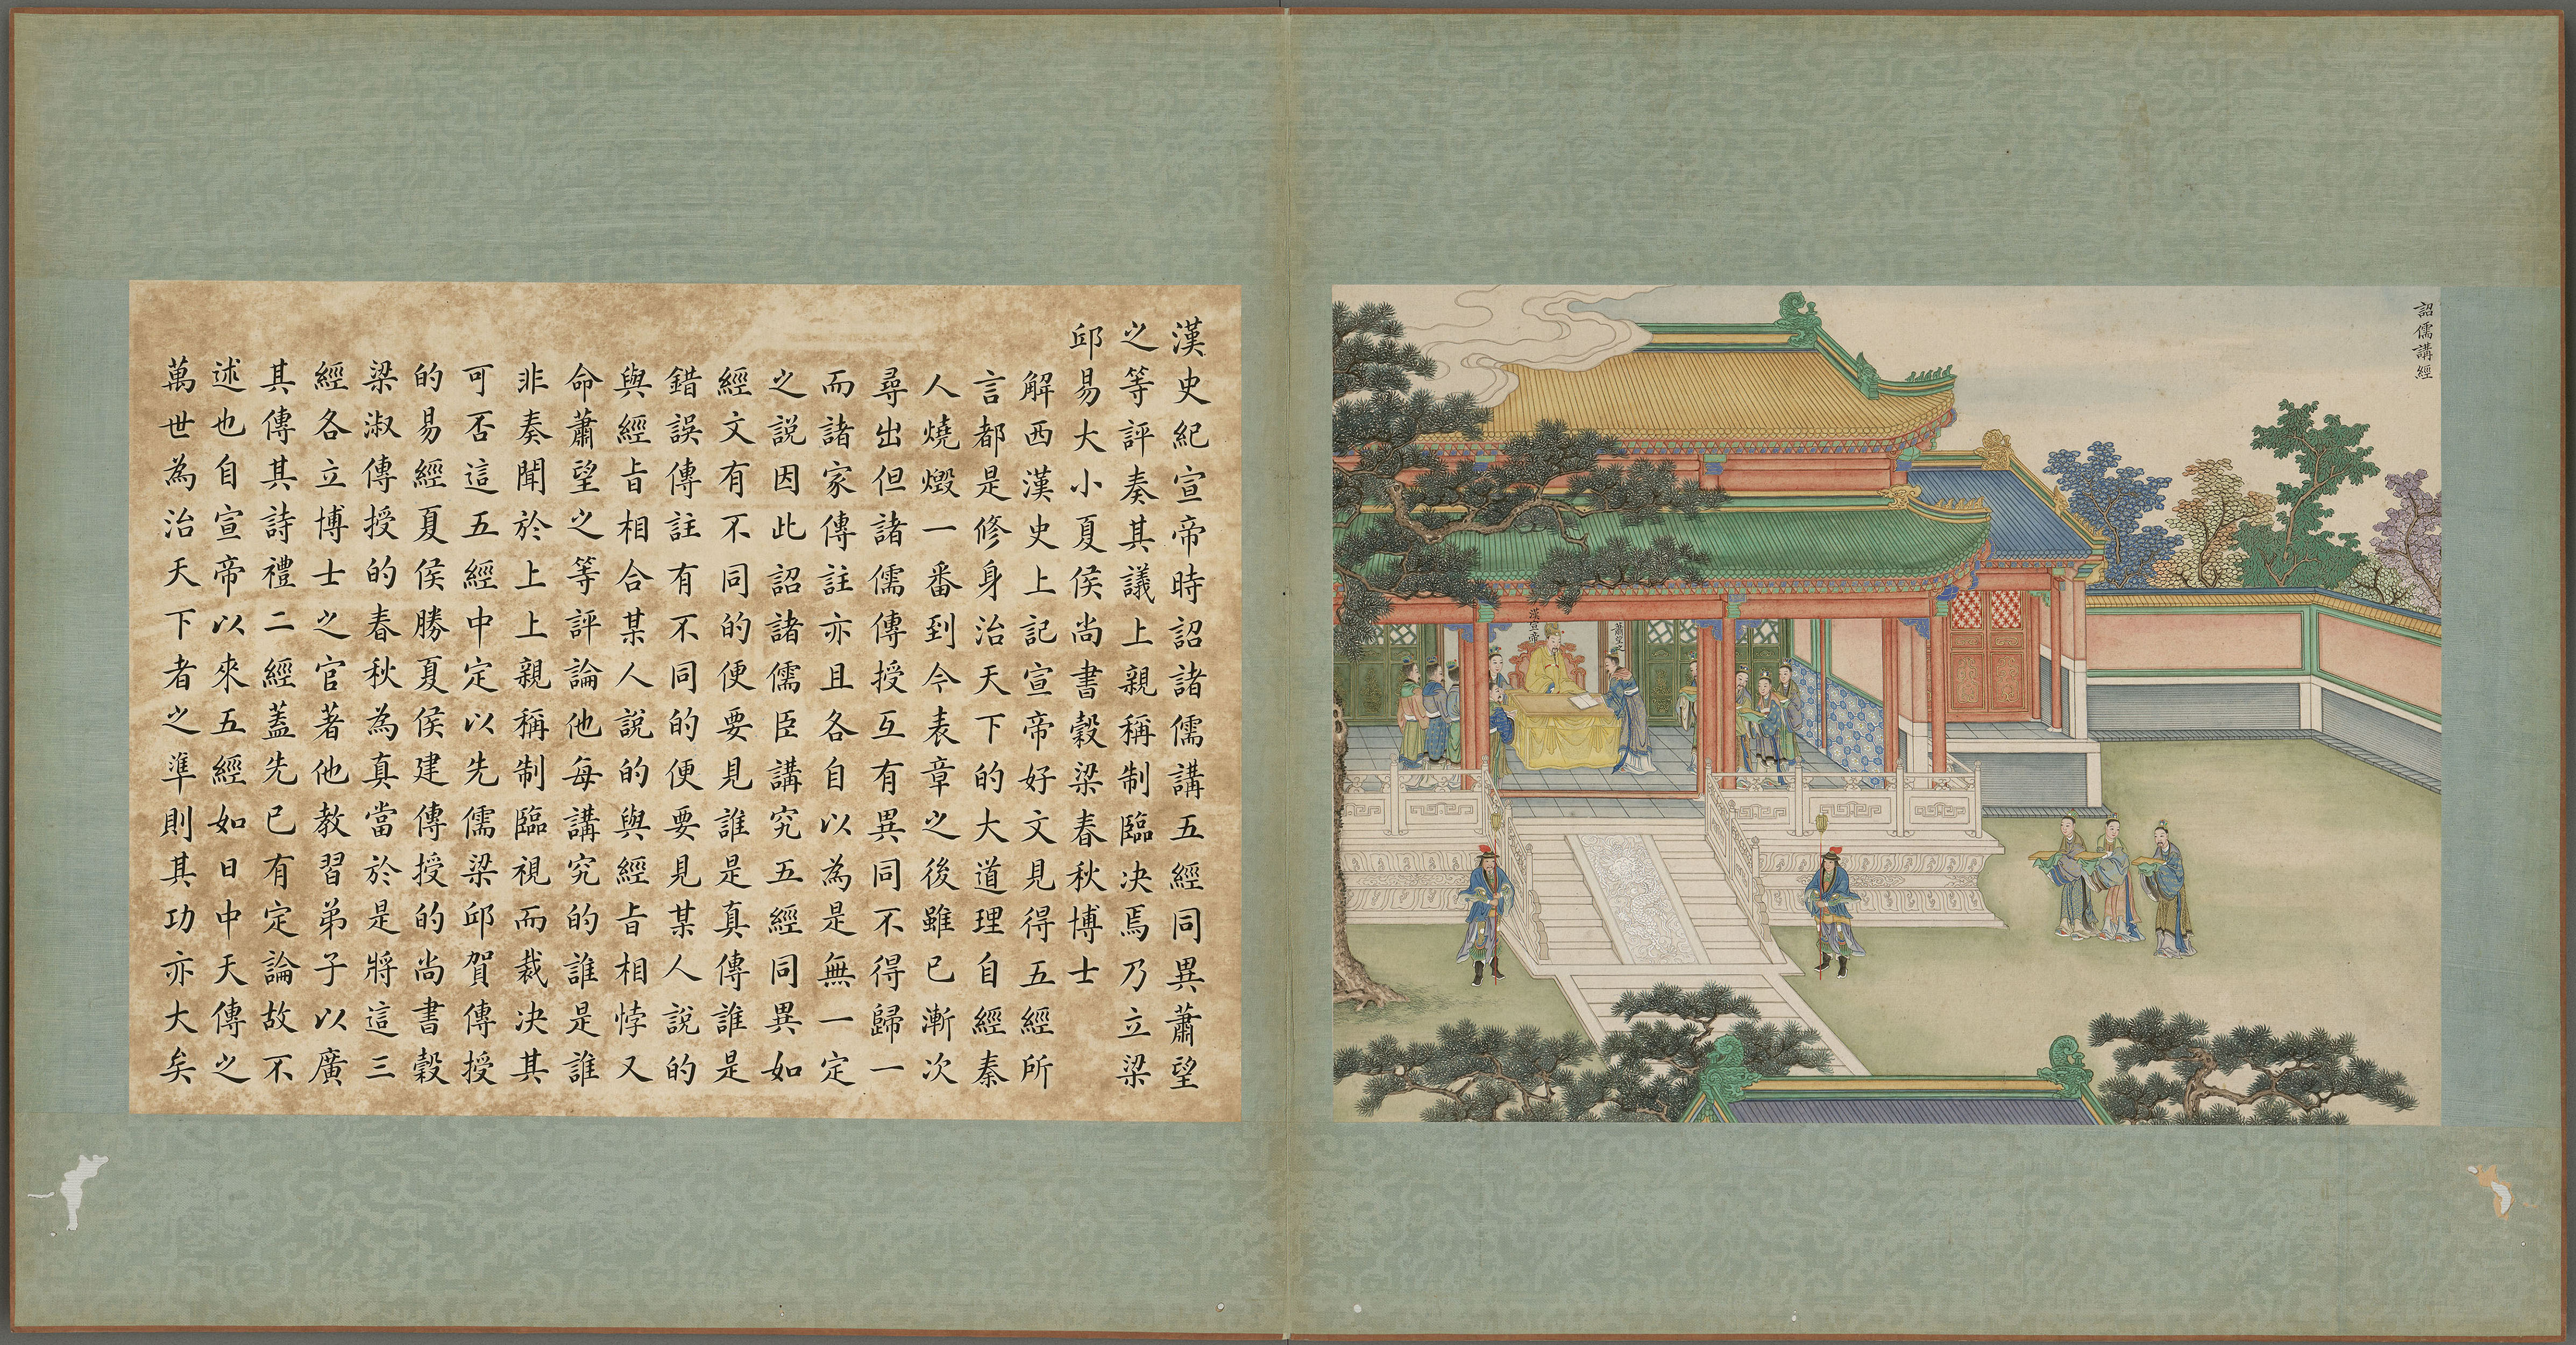 詔儒講經
漢宣帝
蕭望之
漢史紀宣帝時詔諸儒講五經同異蕭望
之等評奏其議上親稱制臨決焉乃立梁
邱易大小夏侯尚書穀梁春秋博士
解西漢史上記宣帝好文見得五經所
言都是修身治天下的大道理自經秦
人燒燬一番到今表章之後雖已漸次
尋出但諸儒傳授互有異同不得歸一
而諸家傳註亦且各自以為是無一定
之說因此詔諸儒臣講究五經同異如
經文有不同的便要見誰是真傳誰是
錯誤傳註有不同的便要見某人說的
與經旨相合某人說的與經旨相悖又
命蕭望之等評論他每講究的誰是誰
非奏聞於上上親稱制臨視而裁決其
可否這五經中定以先儒梁邱賀傳授
的易經夏侯勝夏侯建傳授的尚書穀
梁淑傳授的春秋為真當於是將這三
經各立博士之官著他教習弟子以廣
其傳其詩禮二經蓋先已有定論故不
述也自宣帝以來五經如日中天傳之
萬世為治天下者之準則其功亦大矣